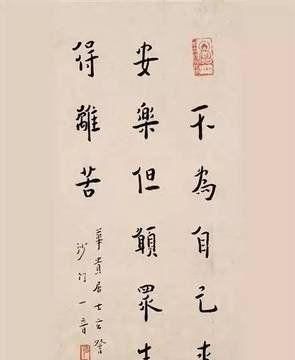 不為自己求
安樂但願眾生
得離苦
華貴居士
沙門一音